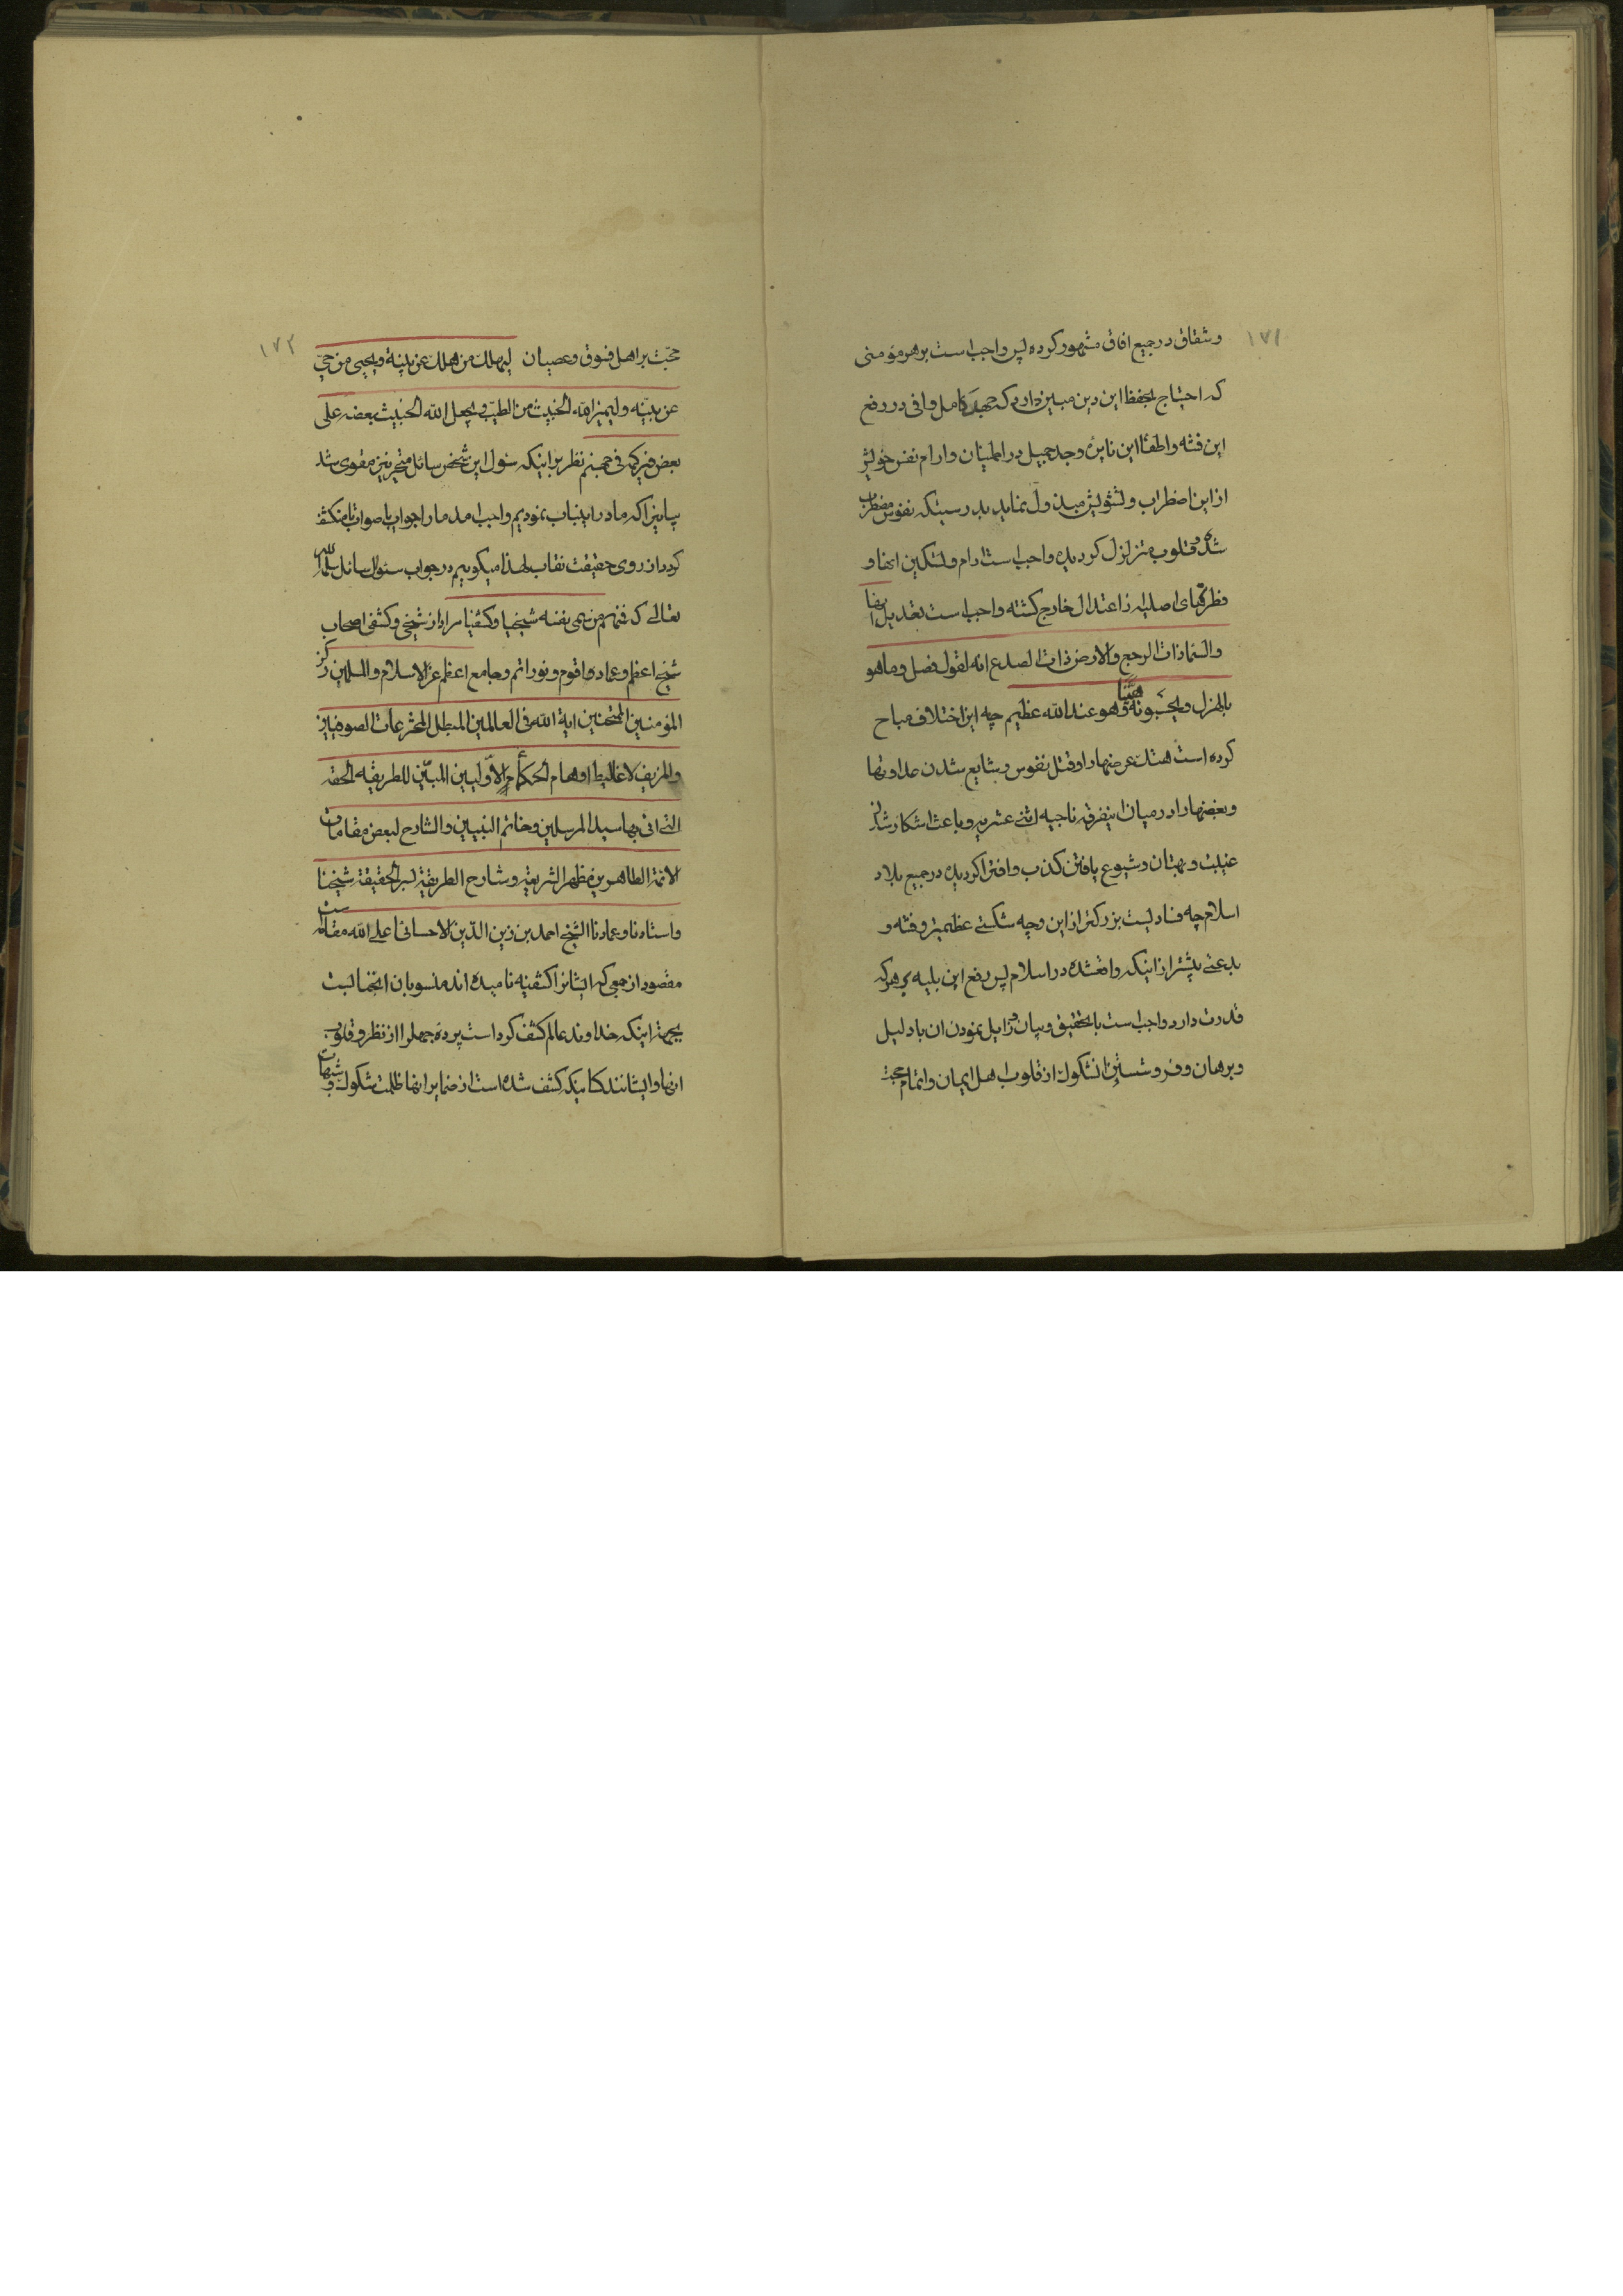 ١٧١
وشقاق در جمیع افاق مشهور کرده پس واجب است بر هر مؤمنی
که احتیاج بحفظ این دین مبین دارد که جهد کامل وافی در رفع
این فتنه واطفأ این نایره وجد جمیل در اطمینان وارام نفس خویش
از این اضطراب وتشویش مبذول نماید بدرستیکه نفوس مضطرب
شده وقلوب متزلزل کردیده واجب است ارام وتسکین انها و
فطرتهای اصلیه از اعتدال خارج کشته واجب است تعدیل انها
والسماذات الرجع والارض ذات الصدع انه لقول فصل وماهو
بالهزل ویحسبونه هیّنا وهو عند الله عظیم چه این اختلاف مباح
کرده است هتک عرضها را وقتل نفوس وشایع شدن عداوتها
وبغضها را در میان اینفرقه ناجیه اثنی عشریه وباعث اشکار شدن
غیبت وبهتان وشیوع یافتن کذب وافترا کردیده در جمیع بلاد
اسلام چه فسادیست بزرکتر از این وچه شکستی عظیمتر وفتنه و
بدعتی بیشتر از اینکه واقعشده در اسلام پس رفع این بلیه بر هرکه
قدرت دارد واجب است بالتحقیق وبیان وزایل نمودن ان با دلیل
وبرهان وفرو شستن انشکوک از قلوب اهل ایمان واتمام حجت
١٧٢
حجّت بر اهل فسوق وعصیان لیهلک من هلک عن بینة ویحیی من حیّ
عن بیّنه ولیمیز الله الخبیث من الطیّب ویجعل الله الخبیث بعضه علی
بعض فیرکمه فی جهنم نظر بر اینکه سئول این شخص سائل متحیر نیز مقوی شد
بیانیرا که ما در اینباب نمودیم واجب امد ما را جواب با صواب تا منکشف
کردد از روی حقیقت نقاب لهذا میکوییم در جواب سئوال سائل سلمه الله
تعالی که فمنهم من سمی نفسه شیخیا وکشفیا مراد از شیخی وکشفی اصحاب
شیخ اعظم وعماد اقوم ونور اتم وجامع اعظم عز الاسلام والمسلمین رکن
المؤمنین الممتحنین ایة الله فی العالمین المبطل المخترعات الصوفیین
والمزیف لاغالیط اوهام الحکمأ الاوّلیین المبیّن للطریقه الحقه
التی اتی بها سید المرسلین وخاتم النبیین والشارح لبعض مقامات
الائمة الطاهرین مظهر الشریعة وشارح الطریقة لسر الحقیقة شیخنا
واستادنا وعمادنا الشیخ احمد بن زین الدّین الاحسائی اعلی الله مقامه ست
مقصود از جمعی که ایشانرا کشفیه نامیده اند منسوبان انجنابست
بجهة اینکه خداوند عالم کشف کرد است پرده جهلرا از نظر وقلوب
انها وایشانند کسانیکه کشف شده است از ضمایر انها ظلمت شکوک وشبهات